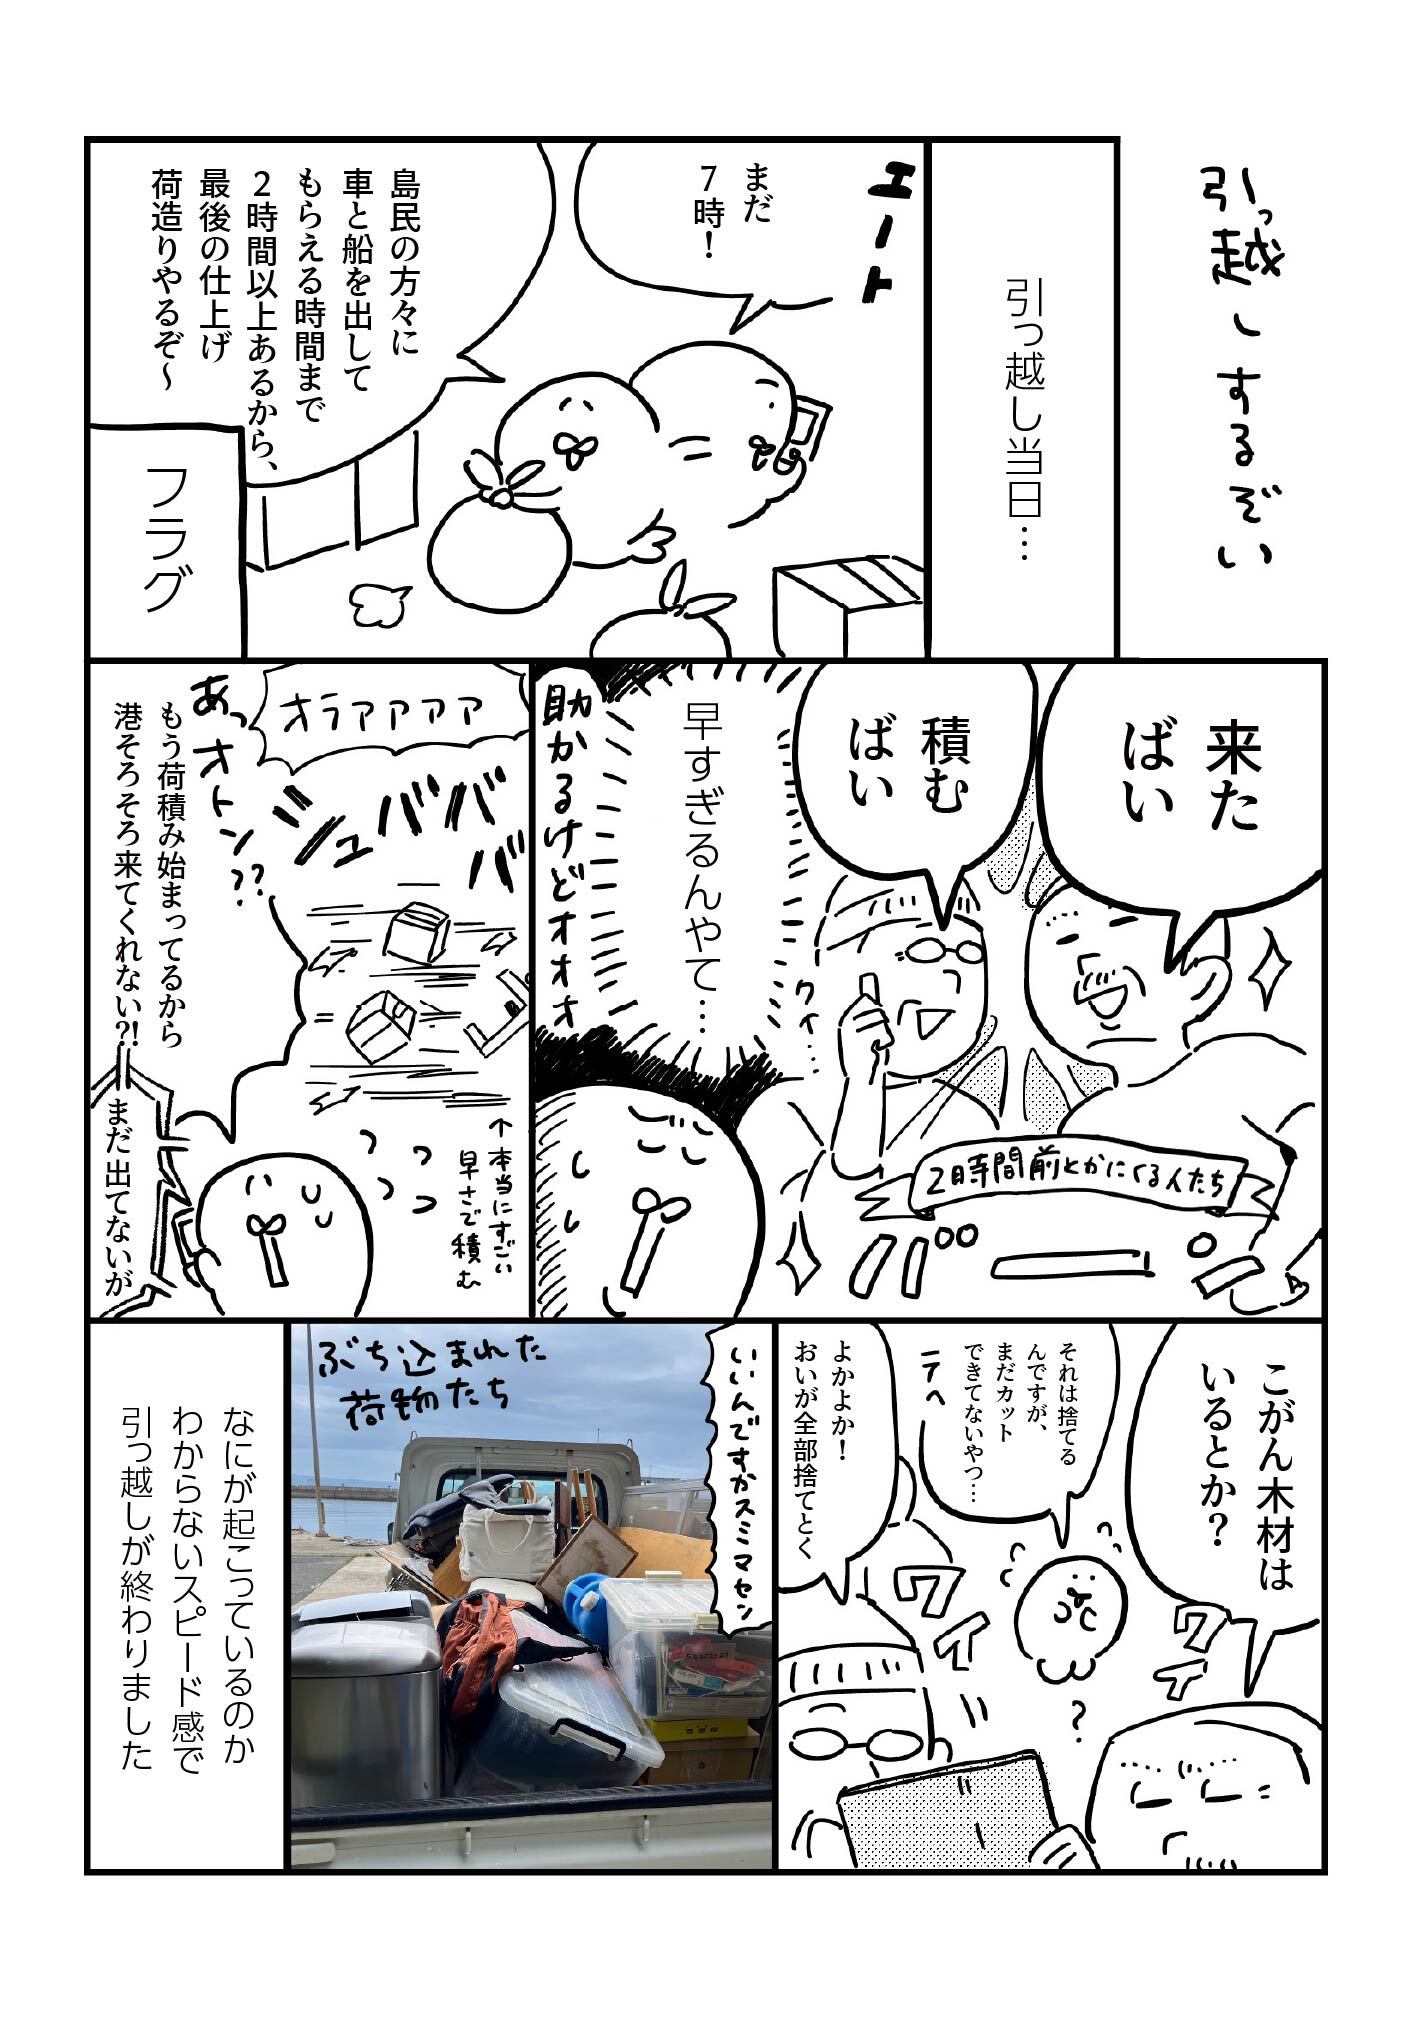 引っ越しするぞい
引っ越し当日…
エート
まだ
7時！
島民の方々に
車と船を出して
もらえる時間まで
2時間以上あるから、
最後の仕上げ
荷造りやるぞ〜
フラグ
来た
ばい
積む
ばい
クイ…
2時間前とかにくる人たち
早すぎるんやて…
助かるけどオオオ
オラァァァァ
シュババババ
あっオトン??
もう荷積み始まってるから
港そろそろ来てくれない?!
まだ出てないが
↑本当にすごい
早さで積む
こがん木材は
いるとか？
それは捨てる
んですが、
まだカット
できてないやつ…
ニテヘ
よかよか！
おいが全部捨てとく
ワイ
ワイ
いいんですかスミマセン
ぶち込まれた
荷物たち
なにが起こっているのか
わからないスピード感で
引っ越しが終わりました